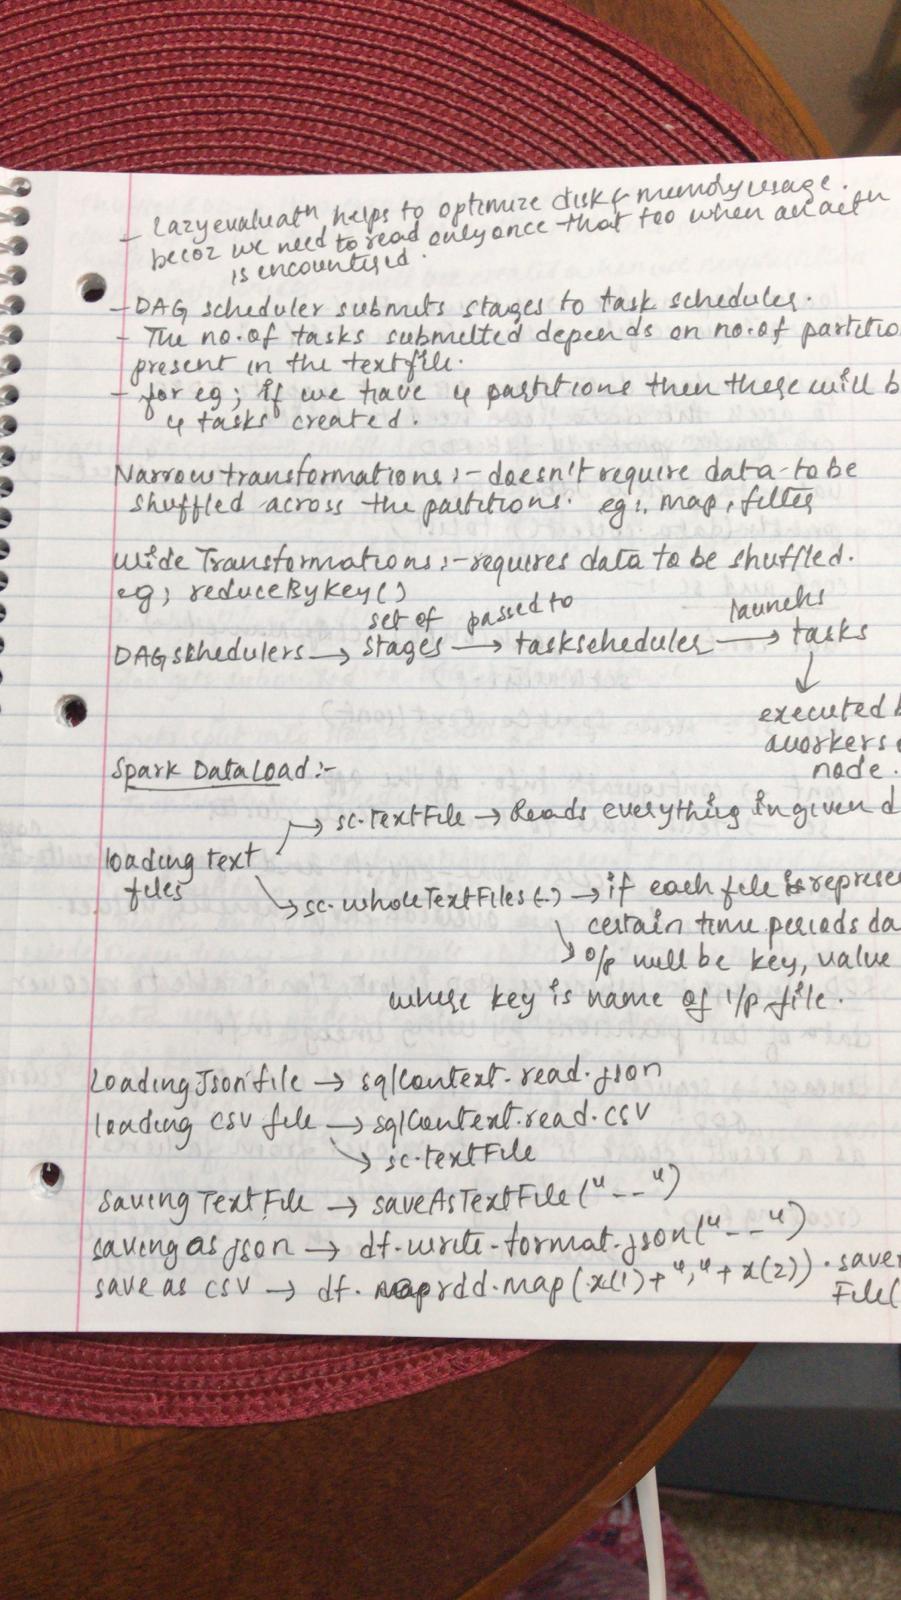 - Lazyevaluatn helps to optimize disk & memory usage.
becoz we need to read only once that too when an actn
is encountered.
- DAG scheduler submits stages to task scheduler.
- The no. of tasks submitted depends on no. of partitio
present in the textfile.
- for eg; if we have 4 partitions then there will b
4 tasks created.
Narrow transformations :- doesn't require data to be
shuffled across the partitions. eg:, map, filter
Wide Transformations :- requires data to be shuffled.
eg; reduceByKey()
set of passed to launches
DAG schedulers → stages → taskscheduler → tasks
executed b
workers o
node.
Spark Data Load :-
→ sc.TextFile → Reads everything in given d
loading text
files
→ sc.wholeTextFiles(-) → if each file is represe
certain time periods da
→ o/p will be key, value
where key is name of i/p file.
Loading Json file → sqlContext.read.json
loading csv file → sqlContext.read.csv
→ sc.textFile
Saving TextFile → saveAsTextFile("--")
saving as json → df.write.format.json("--")
save as csv → df. rdd.map(x(1)+","+x(2)).save
File(